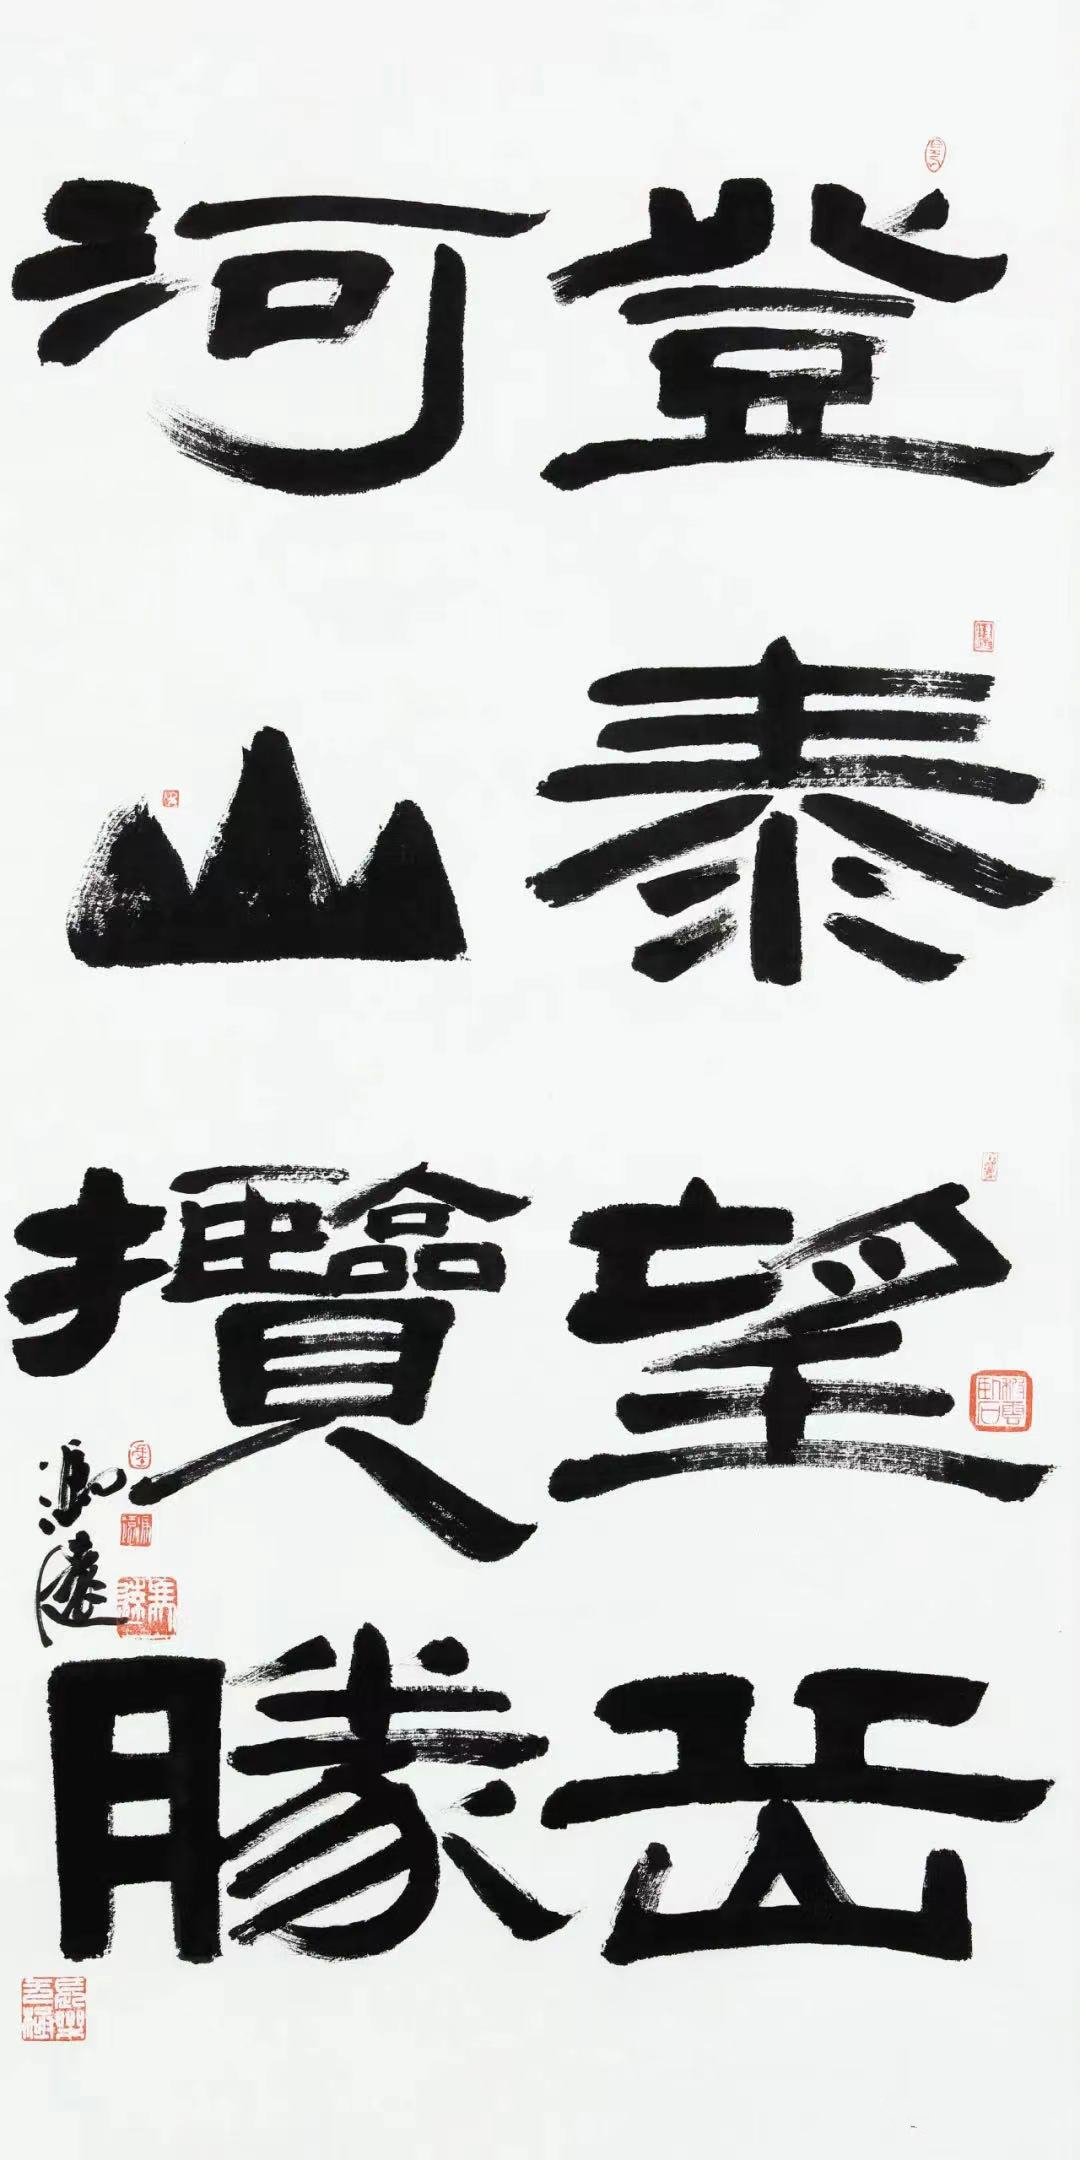 登泰望岳
河山攬勝
馮遠